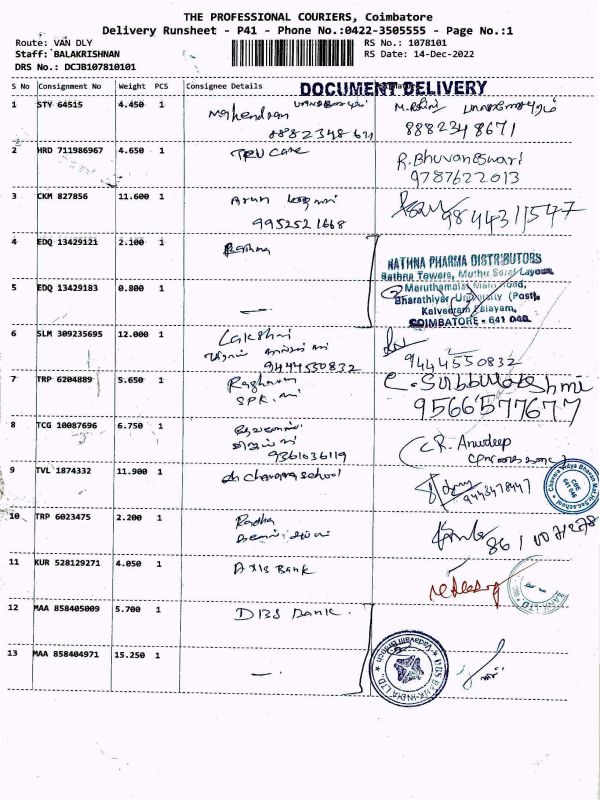 THE PROFESSIONAL COURIERS, Coimbatore
Delivery Runsheet - P41 - Phone No.:0422-3505555 - Page No.:1
Route: VAN DLY
RS No.: 1078101
Staff: BALAKRISHNAN
RS Date: 14-Dec-2022
DRS No.: DCJB107810101
S No Consignment No Weight PCS Consignee Details
DOCUMENT DELIVERY
1 STY 64515 4.450 1 Mahendran
8882348671
8882348671
2 HRD 711986967 4.650 1 TRU Care R.Bhuvaneswari
9787622013
3 CKM 827856 11.600 1 Arun
9952521668 9844311547
4 EDQ 13429121 2.100 1
RATHNA PHARMA DISTRIBUTORS
Rathna Towers, Muthu Layout,
Maruthamalai Main Road,
Bharathiyar University (Post),
Kalveerampalayam,
COIMBATORE - 641 046.
5 EDQ 13429183 0.800 1 —
6 SLM 309235695 12.000 1 Lakshmi
9444550832 9444550832
7 TRP 6204889 5.650 1 Raghavan C. Subbulakshmi
SPK. 9566577677
8 TCG 10087696 6.750 1
9361036119
R. Anudeep
9 TVL 1874332 11.900 1 school
9443478447
10 TRP 6023475 2.200 1 Radha
11 KUR 528129271 4.050 1 Axis Bank
12 MAA 858405009 5.700 1 DBS Bank.
13 MAA 858404971 15.250 1 —
DBS BANK INDIA LTD.
Vadavalli Branch